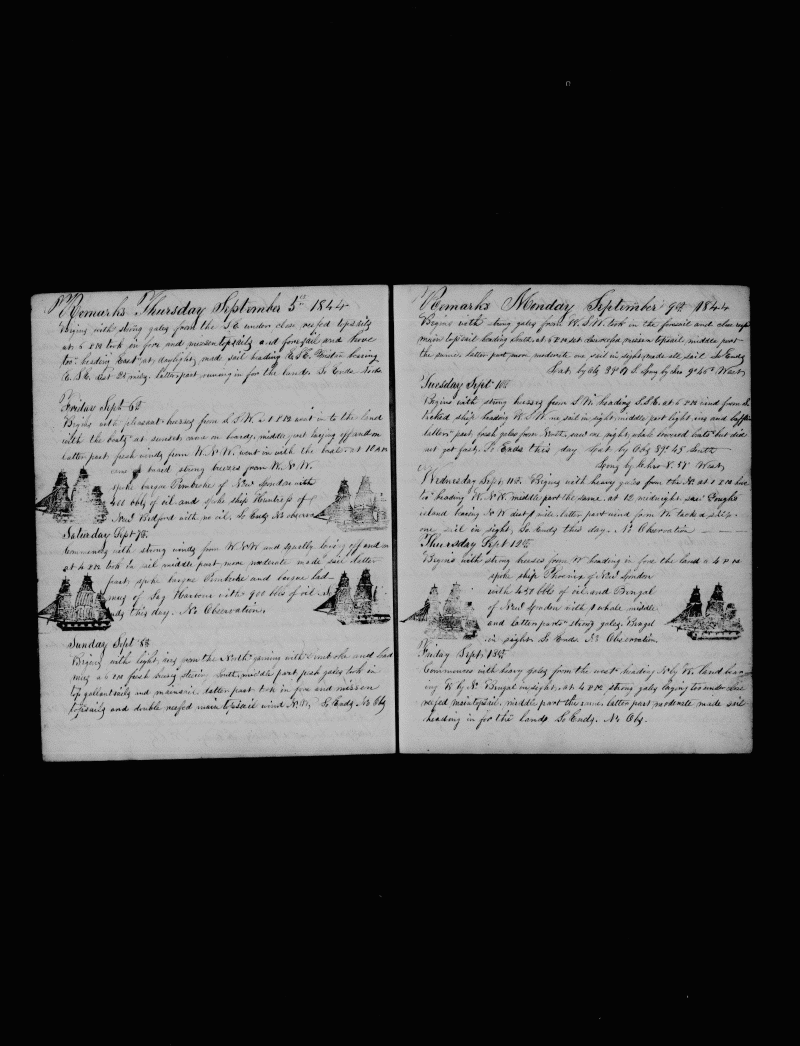 Remarks Thursday September 5th 1844
Begins with strong gales from the S.E. under close reefed topsails
at 5 PM took in fore and mizzen topsails and foresail and hove
too heading East at daylight made sail heading
E.S.E. dist 20 miles latter part running in for the land So Ends
Friday Sept 6th
Begins with pleasant breezes from S.S.W. at 1 PM went in to the land
with the boats at sunset came on board middle part laying off and on
latter part fresh winds from W.N.W. went in with the boats at 10 AM
came on board strong breezes from W.N.W.
spoke barque Pembroke of New London with
400 bbls of oil and spoke ship Huntress of
New Bedford with no oil So Ends No observ
Saturday Sept 7th
Commences with strong winds from W.N.W and squally laying off and on
at 4 PM took in sail middle part more moderate made sail latter
part spoke barque Pembroke and barque Had-
of Sag Harbour with 900 bbls of oil
this day. No Observation
Sunday Sept 8th
Begins with light airs from the North
at 6 PM fresh breezes steering South middle part fresh gales took in
top gallantsails and mainsail latter part took in fore and mizzen
topsails and double reefed main topsail wind So Ends No Obs
Remarks Monday September 9th 1844
Begins with strong gales from W.S.W. took in the foresail and close reefed
main topsail heading South at 6 PM set close reefed mizzen topsail middle part
the same latter part more moderate one sail in sight made all sail So Ends
Lat by Obs S. Long by chro West
Tuesday Sept 10th
Begins with strong breezes from S.W. heading S.S.E. at 6 PM wind from
tacked ship heading W.S.W. no sail in sight middle part light airs and baffling
latter part fresh gales from North saw one right whale lowered boats but did
not get fast So Ends this day Lat by Obs 45 South
Long by chro West
Wednesday Sept 11th Begins with heavy gales from the N. at 1 PM hove
to heading W.N.W. middle part the same at 12 midnight saw Doughs
island bearing dist miles latter part wind from W. tacked ship
one sail in sight So Ends this day. No Observation
Thursday Sept 12th
Begins with strong breezes from W heading in fore the land at 4 PM
spoke ship Phoenix of New London
with 450 bbls of oil and Bengal
of New London with 1 whale middle
and latter parts strong gales Bengal
in sight So Ends No Observation
Friday Sept 13th
Commences with heavy gales from the west heading N by W. land bear-
ing Bengal in sight at 4 PM strong gales laying too under close
reefed maintopsail middle part the same latter part moderate made sail
heading in for the land So Ends. No Obs.